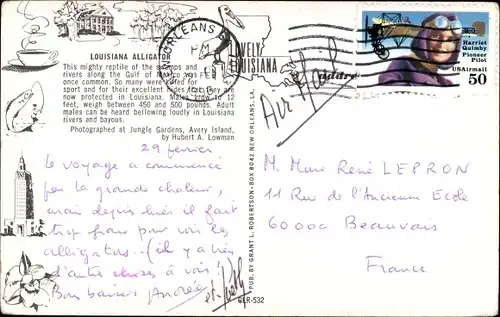 LOUISIANA ALLIGATOR
This mighty reptile of the swamps and
rivers along the Gulf of Mexico was
once common. So many were killed for
sport and for their excellent hides that they are
now protected in Louisiana. Males grow to 12
feet, weigh between 450 and 500 pounds. Adult
males can be heard bellowing loudly in Louisiana
rivers and bayous.
Photographed at Jungle Gardens, Avery Island,
by Hubert A. Lowman
29 février
Le voyage a commencé
par la grande chaleur,
mais depuis hier il fait
trop frais pour voir les
alligators... (il y a bien
d'autres choses à voir)
Bons baisers Andrée
et
GLR-532
PUB. BY GRANT L. ROBERTSON-BOX 8042 NEW ORLEANS, LA.
NEW ORLEANS
PM
29 FEB
LOVELY
LOUISIANA
Harriet
Quimby
Pioneer
Pilot
USAirmail
50
Air Mail
Address
M. Mme René LEPRON
11 Rue de l'Ancienne Ecole
60000 Beauvais
France